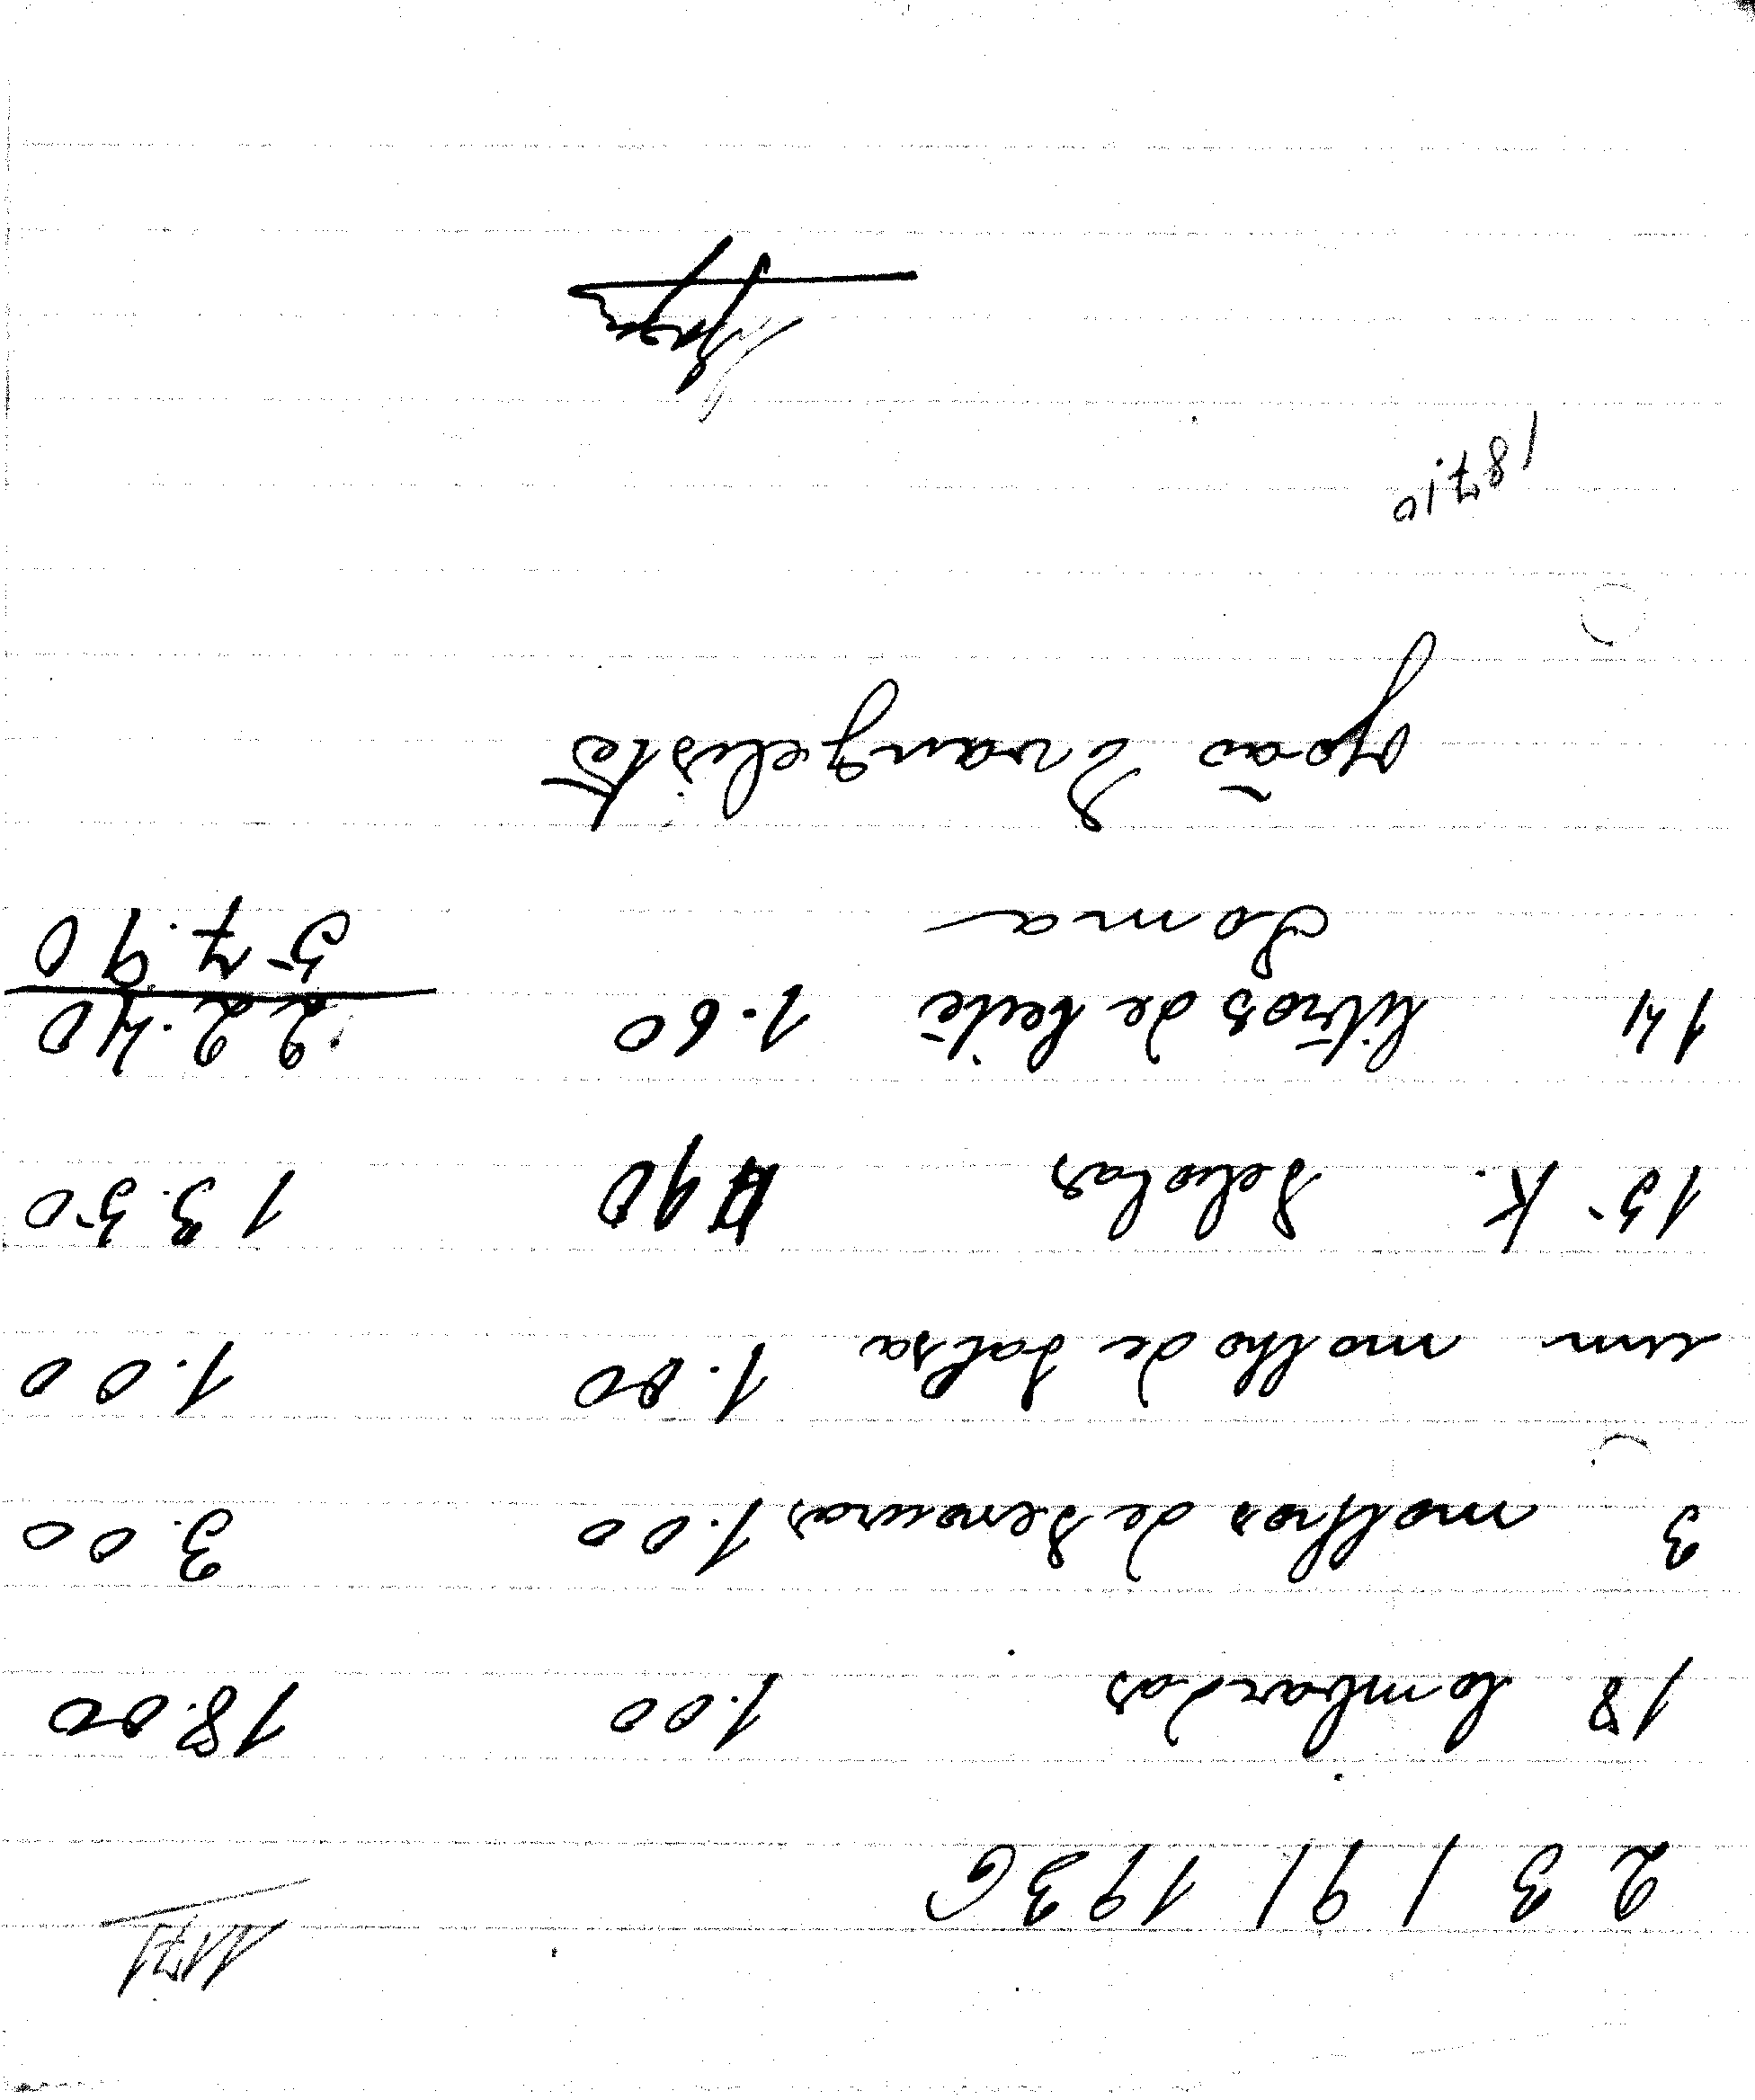 1171
23/9/1936
18 lombardas 1.00 18.00
3 molhos de senouras 1.00 3.00
um molho de salsa 1.00 1.00
15 K. Sebolas 90 13.50
14 litros de leite 1.60 22.40
Soma 57.90
João Evangelista
187,10